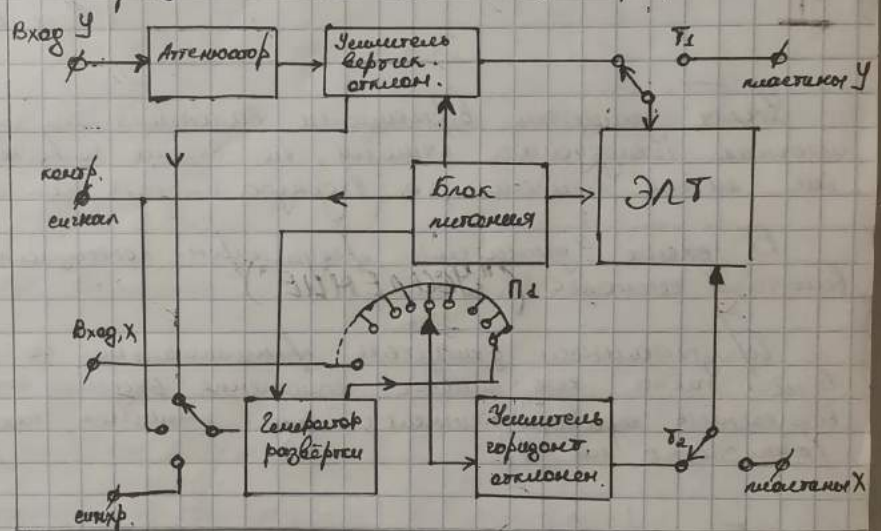 Вход У
Аттенюатор
Усилитель
вертик.
отклон.
T1
пластины У
контр.
сигнал
Блок
питания
ЭЛТ
П1
Вход, X
Генератор
развёртки
Усилитель
горизонт.
отклонен.
T2
пластаны X
синхр.